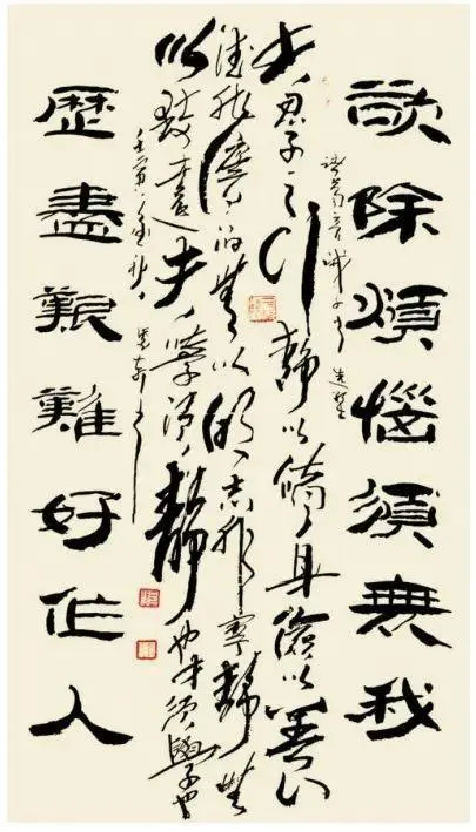 欲除煩惱須無我
諸葛亮誡子書
夫君子之行靜以脩身儉以養
德非澹泊無以明志非寧靜無
以致遠夫學須靜也才須學也
壬寅金秋
歷盡艱難好作人